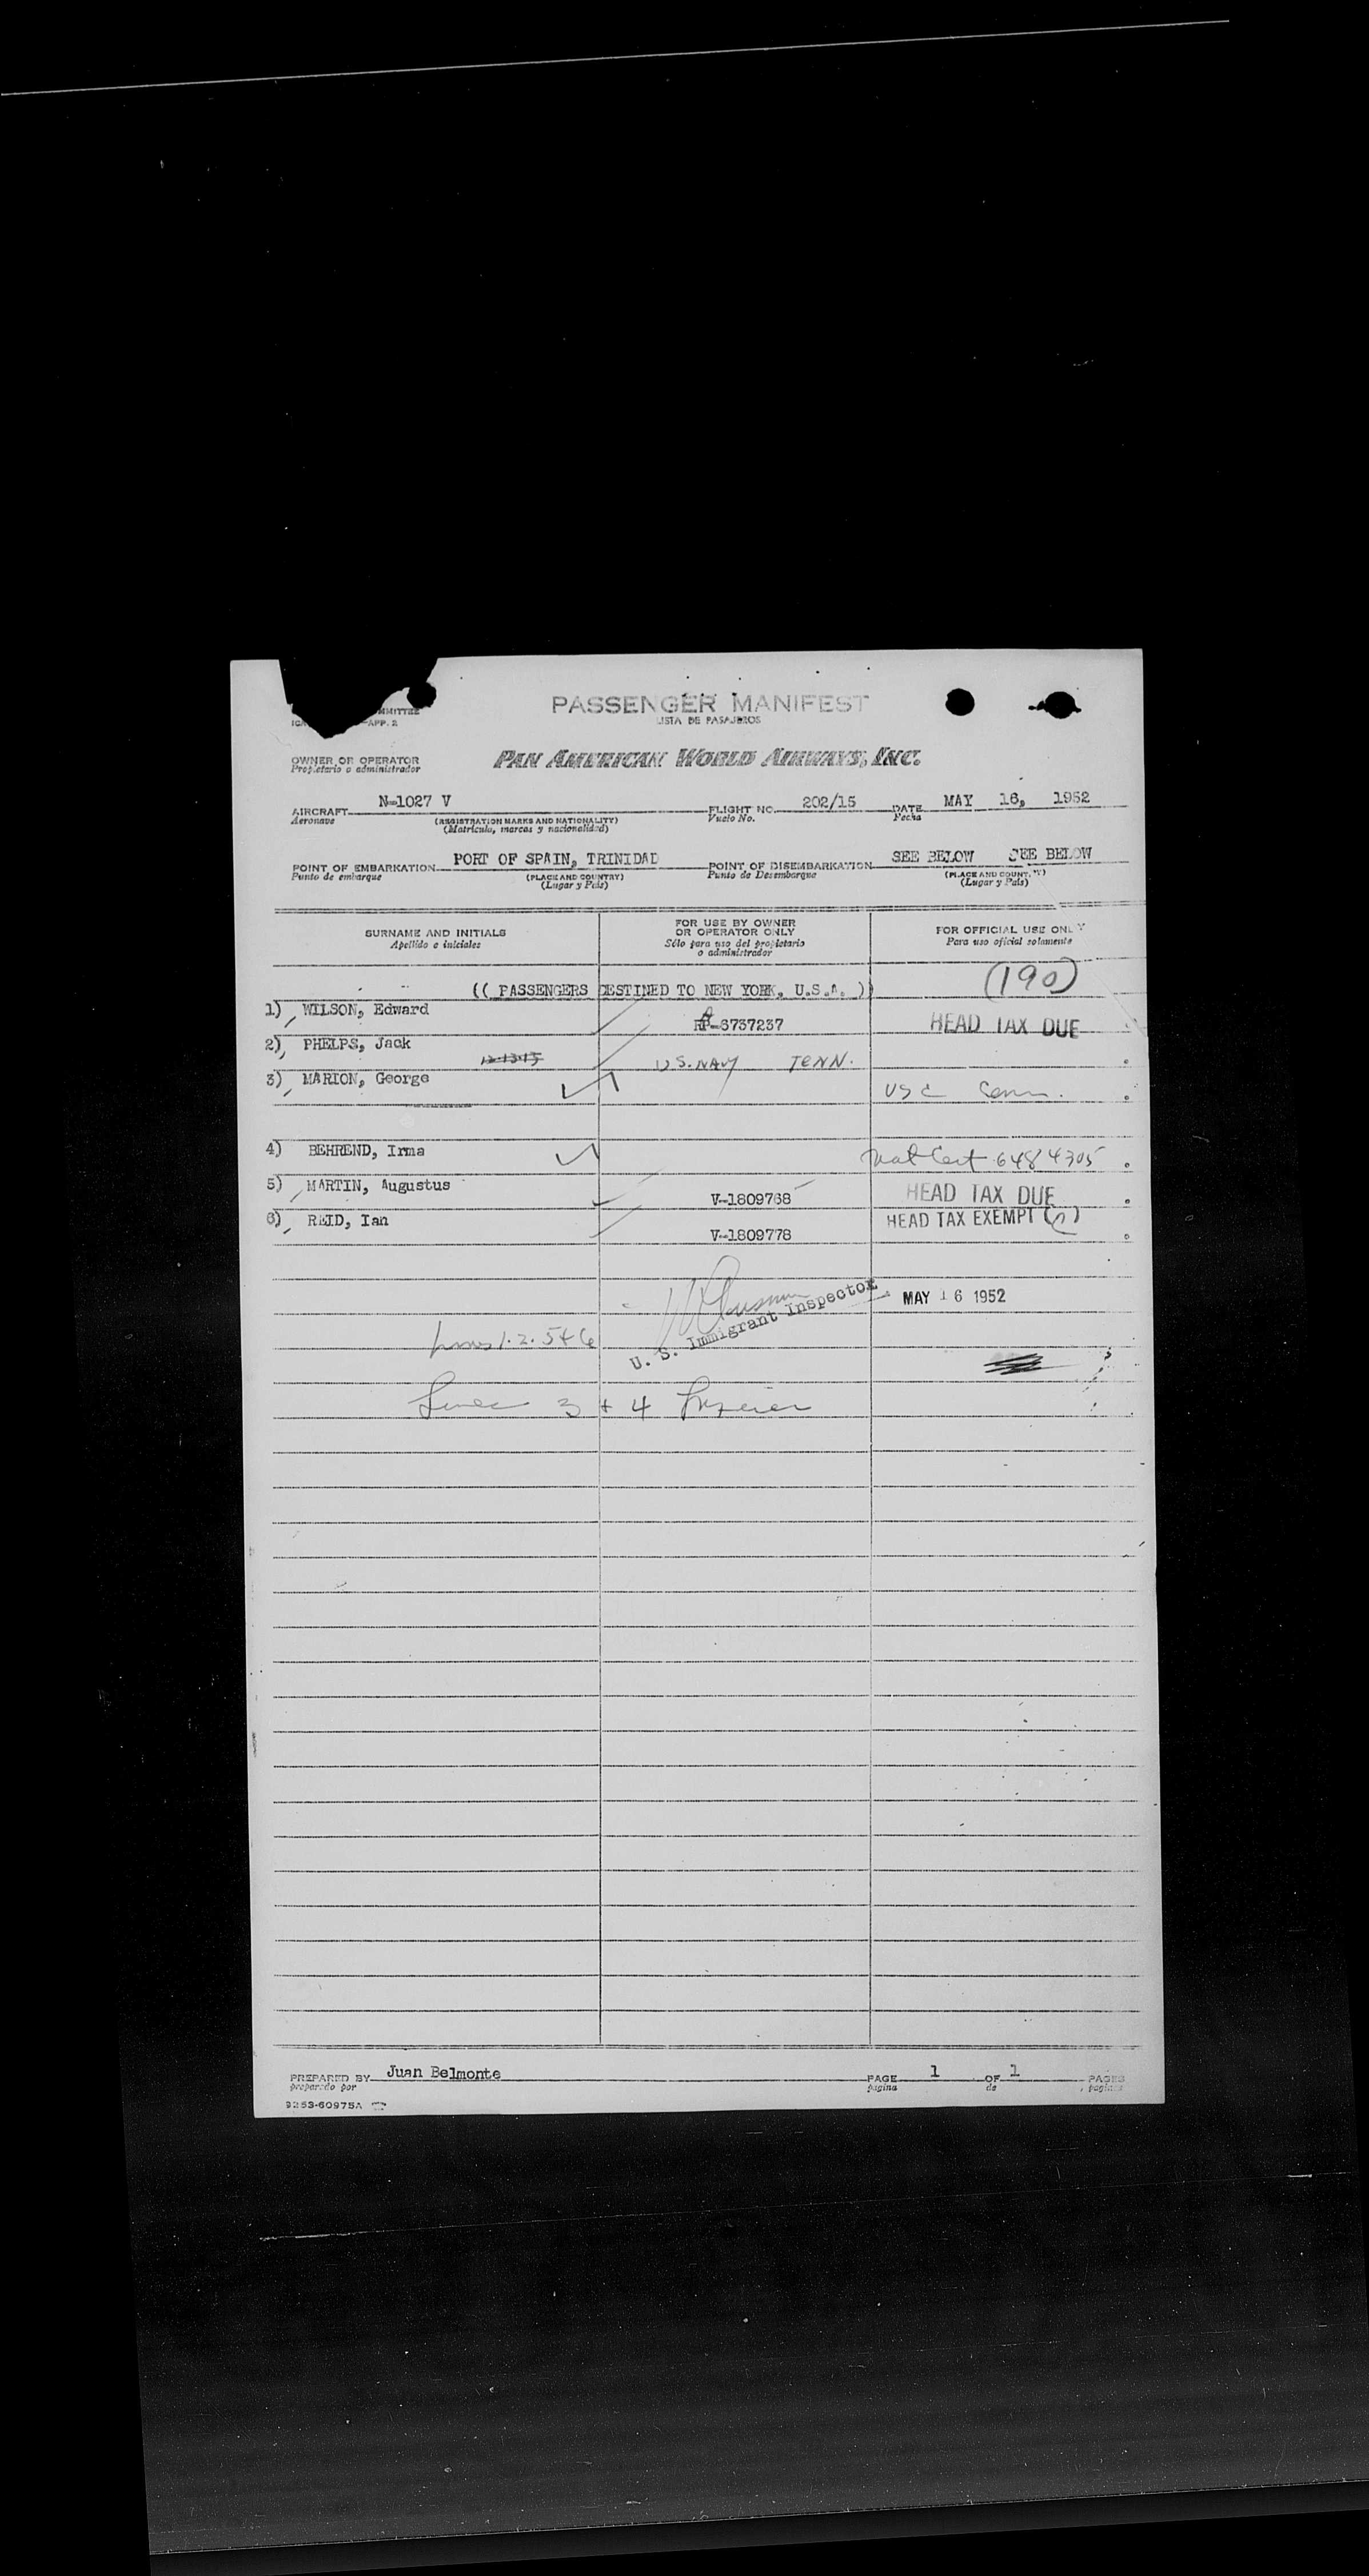 MMITTEE
APP. 2
PASSENGER MANIFEST
LISTA DE PASAJEROS
OWNER OR OPERATOR
Propietario o administrador
PAN AMERICAN WORLD AIRWAYS, INC.
AIRCRAFT N-1027 V FLIGHT NO. 202/15 DATE MAY 16, 1952
Aeronave (REGISTRATION MARKS AND NATIONALITY) Vuelo No. Fecha
(Matrícula, marcas y nacionalidad)
POINT OF EMBARKATION PORT OF SPAIN, TRINIDAD POINT OF DISEMBARKATION SEE BELOW SEE BELOW
Punto de embarque (PLACE AND COUNTRY) Punto de Desembarque (PLACE AND COUNTRY)
(Lugar y País) (Lugar y País)
SURNAME AND INITIALS FOR USE BY OWNER OR OPERATOR ONLY FOR OFFICIAL USE ONLY
Apellido e iniciales Sólo para uso del propietario o administrador Para uso oficial solamente
(( PASSENGERS DESTINED TO NEW YORK, U.S.A. )) (190)
1) WILSON, Edward
RP-6737237 HEAD TAX DUE
2) PHELPS, Jack
12-13-15 U.S. NAVY TENN.
3) MARION, George
USC Conn.
4) BEHREND, Irma
Nat Cert 6484305
5) MARTIN, Augustus
V-1809768 HEAD TAX DUE
6) REID, Ian HEAD TAX EXEMPT
V-1809778
U. S. Immigrant Inspector MAY 16 1952
Lines 1. 2. 5 + 6
Lines 3 + 4
PREPARED BY Juan Belmonte PAGE 1 OF 1 PAGES
preparado por página de páginas
9253-60975A